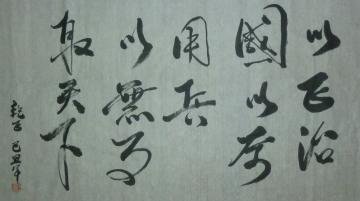 以正治
國以奇
用兵
以無事
取天下
己丑年